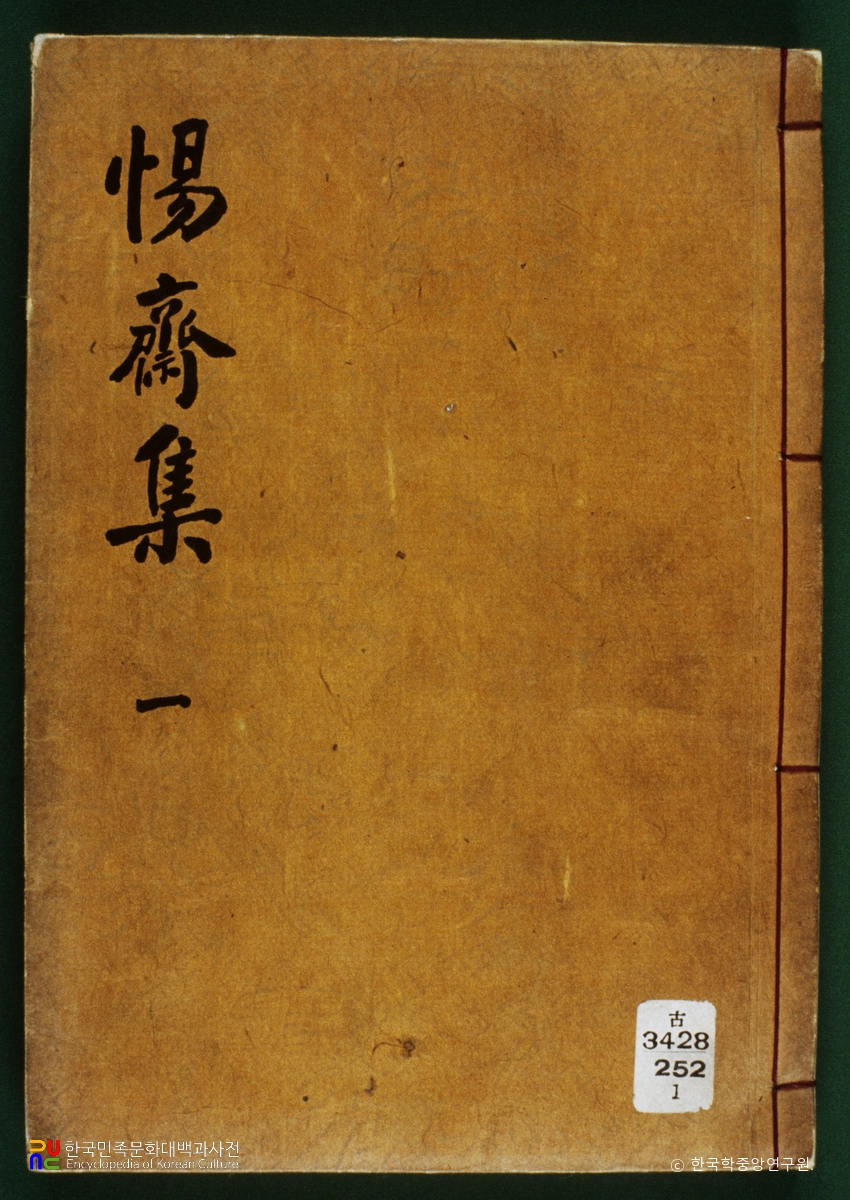 惕齋集
一
古
3428
252
1
한국민족문화대백과사전
Encyclopedia of Korean Culture
© 한국학중앙연구원